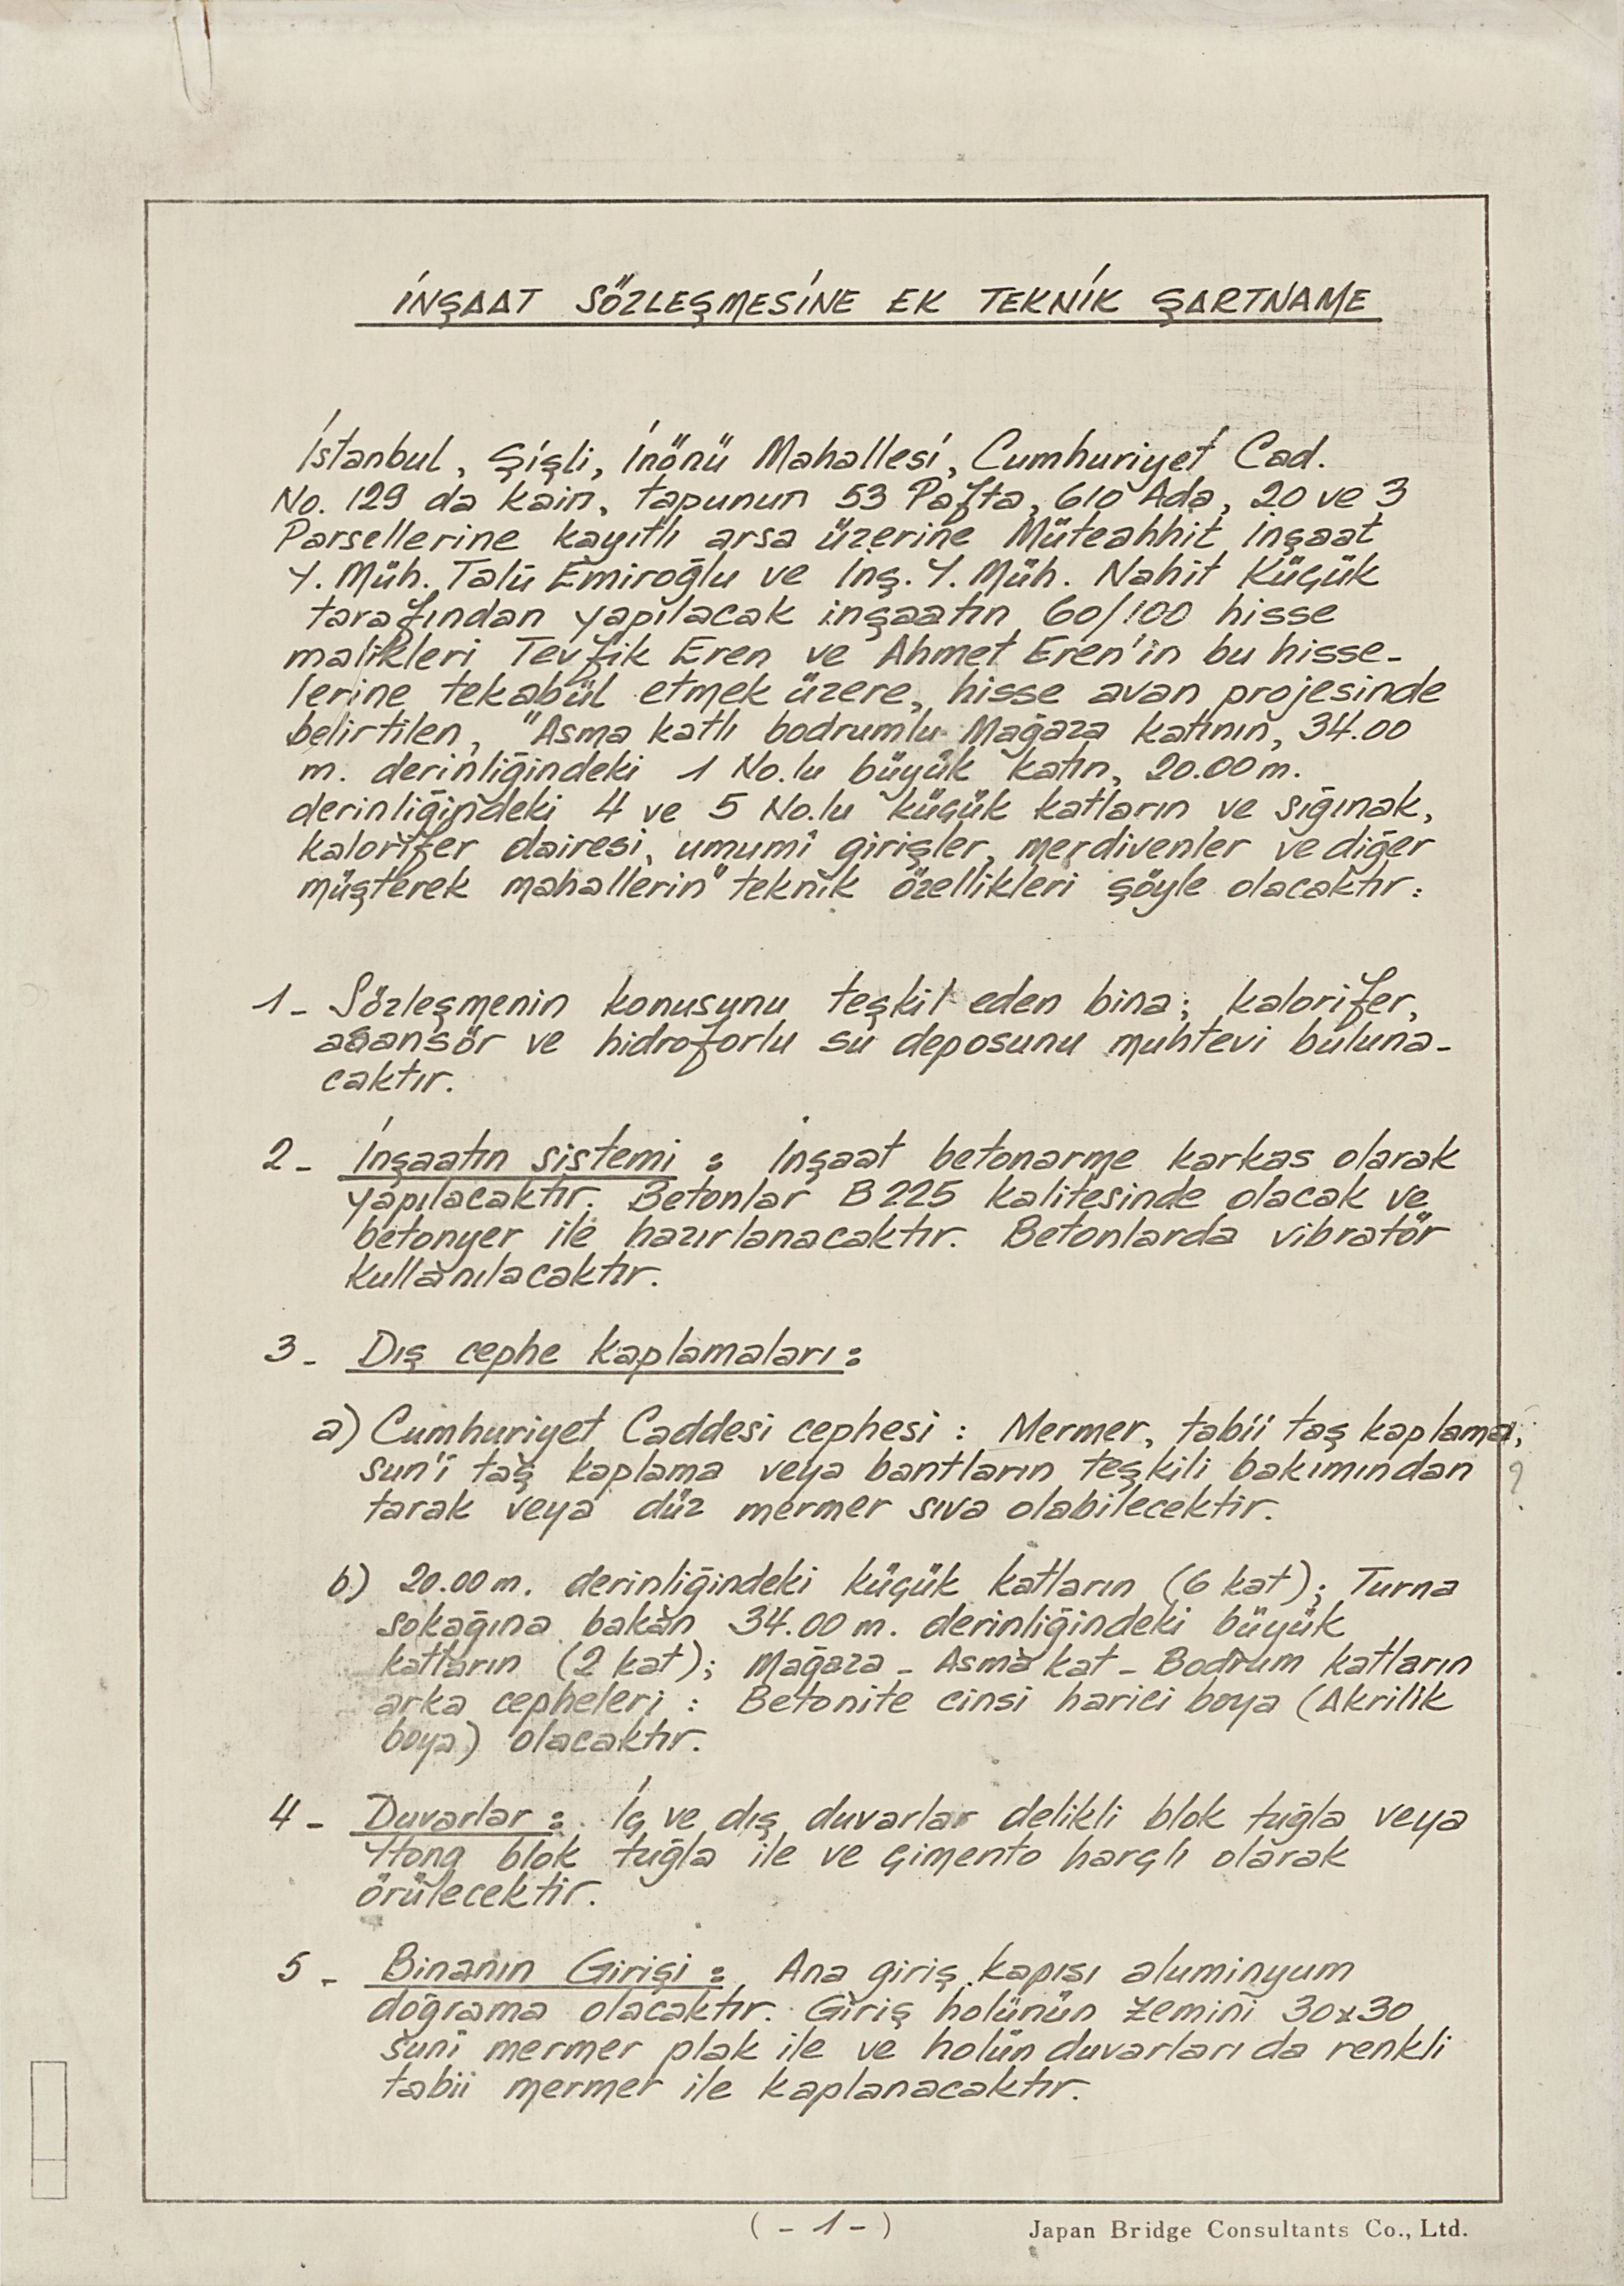 İNŞAAT SÖZLEŞMESİNE EK TEKNİK ŞARTNAME
İstanbul, Şişli, İnönü Mahallesi, Cumhuriyet Cad.
No. 129 da kain, tapunun 53 Pafta, 610 Ada, 20 ve 3
Parsellerine kayıtlı arsa üzerine Müteahhit İnşaat
Y. Müh. Talü Emiroğlu ve İnş. Y. Müh. Nahit Küçük
tarafından yapılacak inşaatın 60/100 hisse
malikleri Tevfik Eren ve Ahmet Eren'in bu hisse-
lerine tekabül etmek üzere, hisse avan projesinde
belirtilen, "Asma katlı bodrumlu Mağaza katının, 34.00
m. derinliğindeki 1 No.lu büyük katın, 20.00 m.
derinliğindeki 4 ve 5 No.lu küçük katların ve sığınak,
kalorifer dairesi, umumî girişler, merdivenler ve diğer
müşterek mahallerin" teknik özellikleri şöyle olacaktır:
1 - Sözleşmenin konusunu teşkil eden bina; kalorifer,
asansör ve hidroforlu su deposunu muhtevi buluna-
caktır.
2 - İnşaatın sistemi : İnşaat betonarme karkas olarak
yapılacaktır. Betonlar B 225 kalitesinde olacak ve
betonyer ile hazırlanacaktır. Betonlarda vibratör
kullanılacaktır.
3 - Dış cephe kaplamaları :
a) Cumhuriyet Caddesi cephesi : Mermer, tabii taş kaplama,
sun'i taş kaplama veya bantların teşkili bakımından ?
tarak veya düz mermer sıva olabilecektir.
b) 20.00 m. derinliğindeki küçük katların (6 kat); Turna
sokağına bakan 34.00 m. derinliğindeki büyük
katların (2 kat); Mağaza - Asma kat - Bodrum katların
arka cepheleri : Betonite cinsi harici boya (Akrilik
boya) olacaktır.
4 - Duvarlar : İç ve dış duvarlar delikli blok tuğla veya
Ytong blok tuğla ile ve çimento harçlı olarak
örülecektir.
5 - Binanın Girişi : Ana giriş kapısı aluminyum
doğrama olacaktır. Giriş holünün zemini 30x30
suni mermer plak ile ve holün duvarları da renkli
tabii mermer ile kaplanacaktır.
( - 1 - )
Japan Bridge Consultants Co., Ltd.